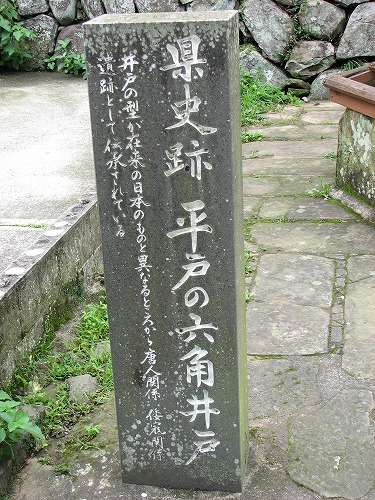 県史跡 平戸の六角井戸
井戸の型が在来の日本のものと異なるところから唐人関係、倭寇関係
遺跡として伝承されている